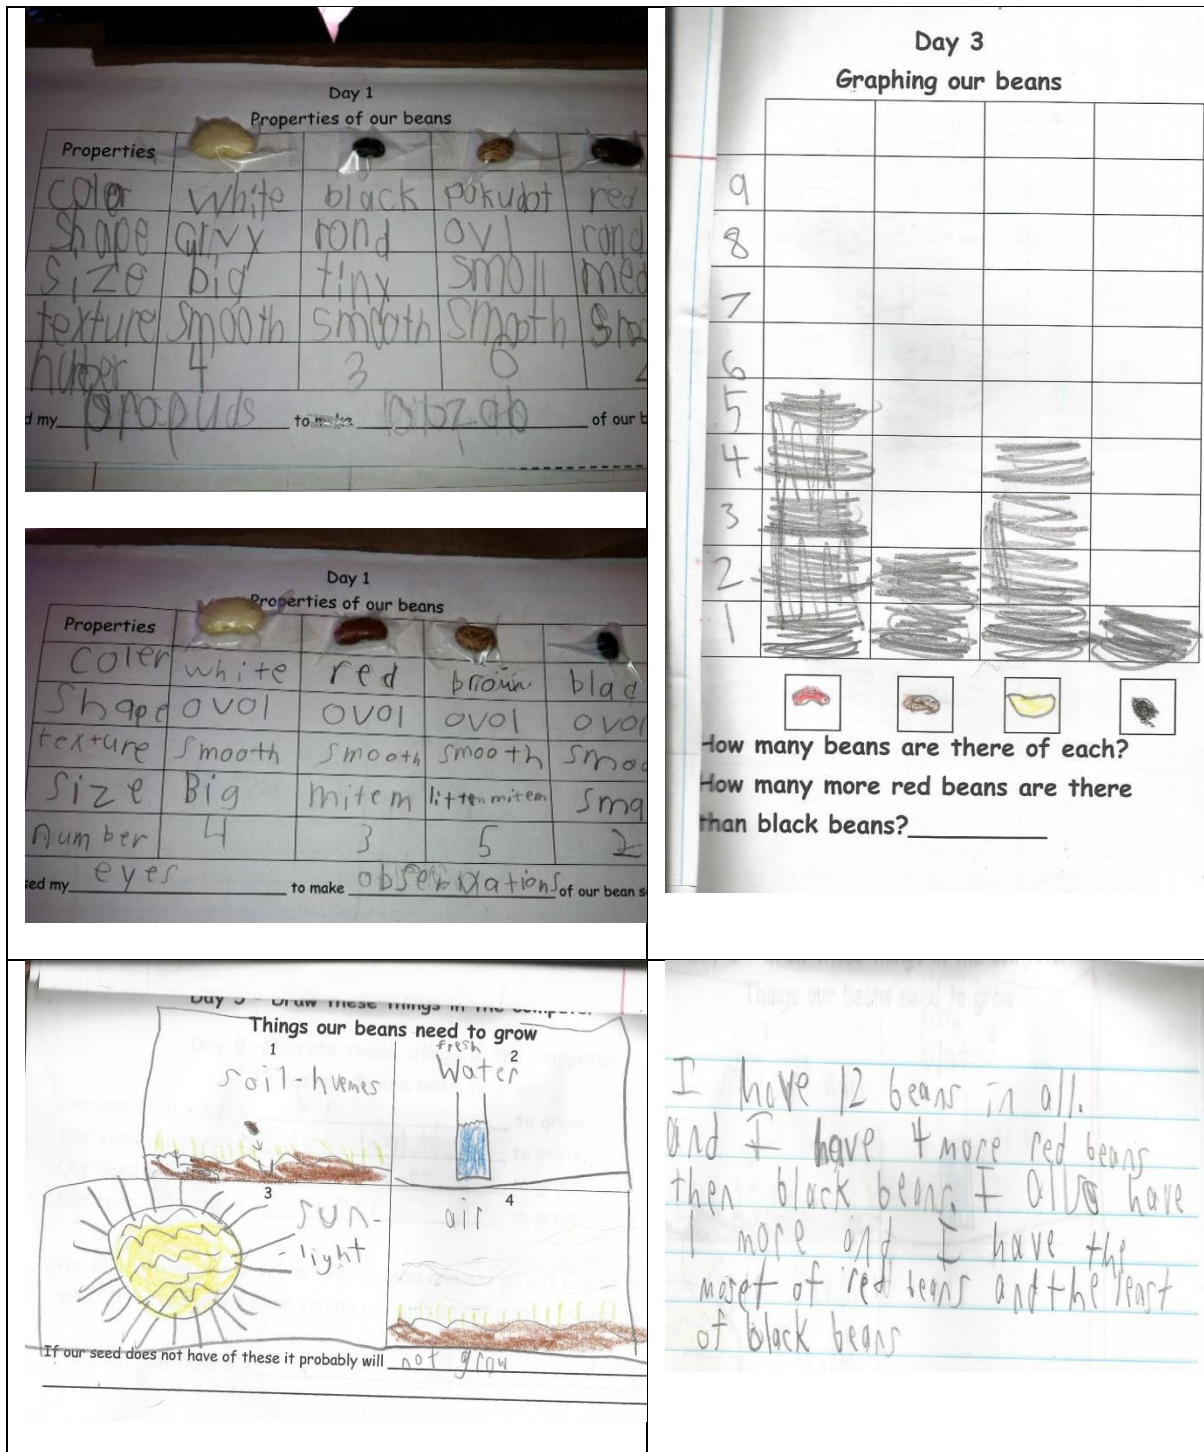 Day 1
Properties of our beans
Properties
coler white black pokudot red
shape crvy rond ovl rond
size big tiny smoll med
texture smooth smooth smooth smoo
number 4 3 6
d my to of our b
Day 1
Properties of our beans
Properties
coler white red brown blad
shape ovol ovol ovol ovol
texture smooth smooth smooth smoo
size Big mitem litten mitem sma
number 4 3 5 2
sed my eyes to make observations of our bean s
Day 3
Graphing our beans
9
8
7
6
5
4
3
2
1
How many beans are there of each?
How many more red beans are there
than black beans?
Day 5 - Draw these things in the computer
Things our beans need to grow
1
soil-humes
fresh 2
Water
3
sun-
light
4
air
If our seed does not have of these it probably will not grow
Things our beans need to grow
I have 12 beans in all.
and I have 4 more red beans
then black beans. I also have
1 more and I have the
moset of red beans and the least
of black beans